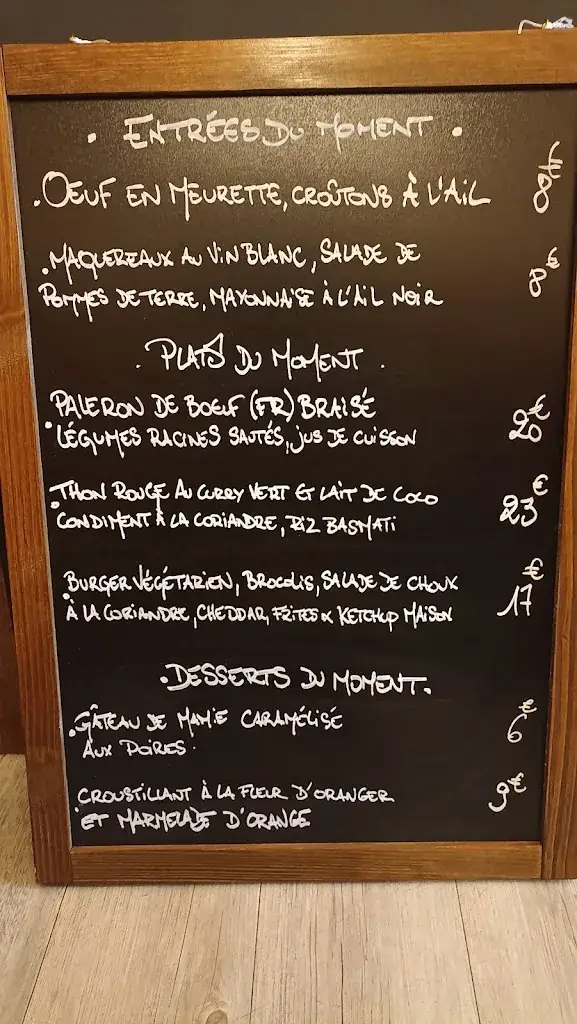 . ENTRÉES DU MOMENT .
. OEUF EN MEURETTE, CROÛTONS À L'AIL 8€
. MAQUEREAUX AU VIN BLANC, SALADE DE
POMMES DE TERRE, MAYONNAISE À L'AIL NOIR 8€
. PLATS DU MOMENT .
PALERON DE BOEUF (FR) BRAISÉ
. LÉGUMES RACINES SAUTÉS, JUS DE CUISSON 20€
THON ROUGE AU CURRY VERT ET LAIT DE COCO
. CONDIMENT À LA CORIANDRE, RIZ BASMATI 23€
BURGER VÉGÉTARIEN, BROCOLIS, SALADE DE CHOUX
. À LA CORIANDRE, CHEDDAR, FRITES & KETCHUP MAISON 17€
. DESSERTS DU MOMENT .
. GÂTEAU DE MAMIE CARAMÉLISÉ
AUX POIRES. 6€
CROUSTILLANT À LA FLEUR D'ORANGER
. ET MARMELADE D'ORANGE 9€